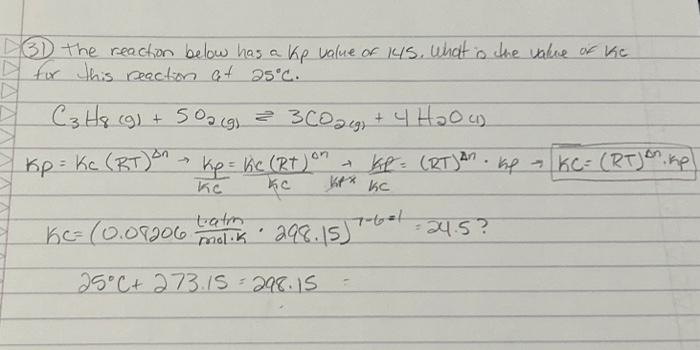 31) The reaction below has a Kp value of 145. What is the value of Kc
for this reaction at 25°C.
C3H8 (g) + 5O2 (g) ⇌ 3CO2 (g) + 4H2O (l)
Kp = Kc (RT)^Δn → Kp/Kc = Kc (RT)^Δn/Kc → Kp/Kc = (RT)^Δn · Kp → Kc = (RT)^Δn · Kp
Kc = (0.08206 L·atm/mol·K · 298.15)^7-6=1 = 24.5?
25°C + 273.15 = 298.15 =